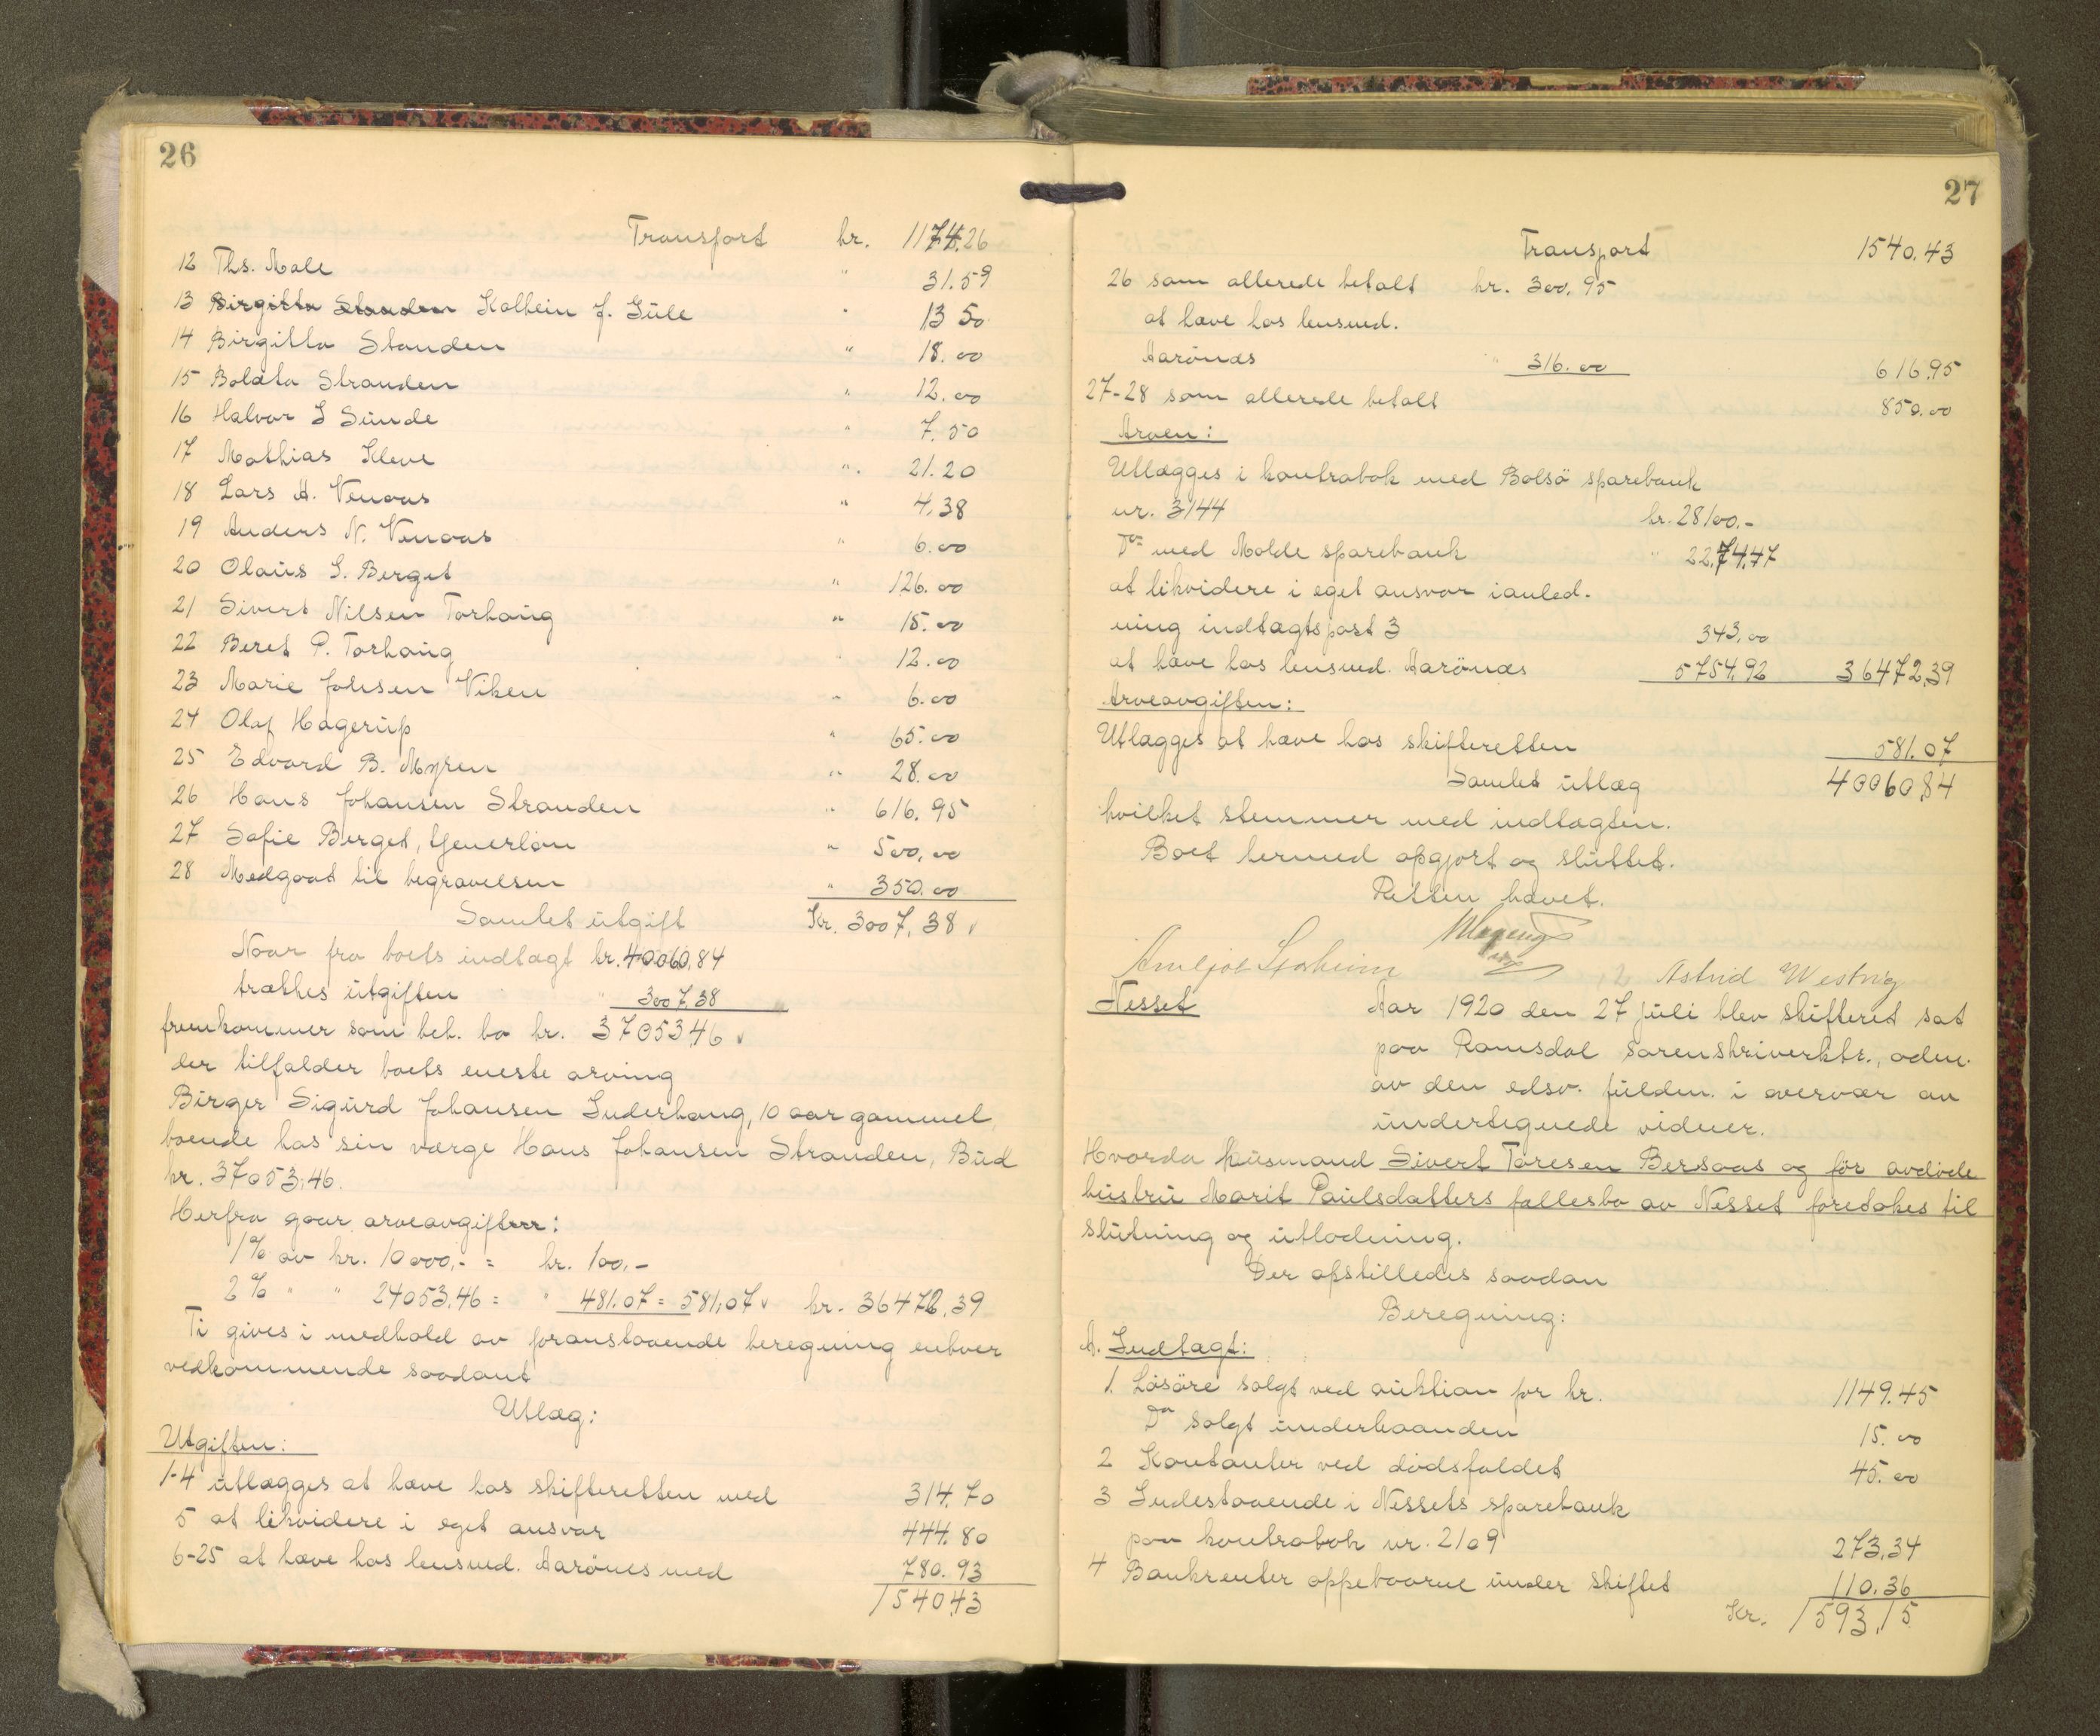 26
Transport kr. 1174.26
12 Ths. Male " 31.59
13 Birgitta Standen Kolbein J. Gule " 13 50
14 Birgitta Standen " 18.00
15 Boldta Stranden " 12.00
16 Halvor L Sunde " 7.50
17 Mathias Kleve " 21.20
18 Lars A. Venaas " 4,38
19 Anders N. Venaas " 6.00
20 Olaus S. Berget " 126.00
21 Sivert Nilsen Torhaug " 15.00
22 Beret P. Torhaug " 12.00
23 Marie Johsen Viken " 6.00
24 Olaf Hagerup " 65.00
25 Edvard B. Myren " 28.00
26 Hans Johansen Stranden " 616.95
27 Sofie Berget, tjenerløn " 500,00
28 Medgaat til begravelsen " 350.00
Samlet utgift Kr. 3007,38
Naar fra boets indtægt kr. 40060,84
trækkes utgiften " 3007,38
fremkommer som beh. bo kr. 37053,46
der tilfalder boets eneste arving
Birger Sigurd Johansen Inderhaug, 10 aar gammel,
boende hos sin værge Hans Johansen Stranden, Bud
kr. 37053,46.
Herfra gaar arveavgiften:
1% av kr. 10000,- = kr. 100,-
2% " " 24053.46 = " 481.07 = 581,07 kr. 36472,39
Ti gives i medhold av foranstaaende beregning enhver
vedkommende saadant
Utlæg:
Utgiften:
1-4 utlægges at hæve hos skifteretten med 314.70
5 at likvidere i eget ansvar 444.80
6-25 at hæve hos lensmd. Aarönes med 780.93
1540,43
27
Transport 1540.43
26 som allerede betalt kr. 300,95
at hæve hos lensmd.
Aarönæs " 316.00 616,95
27-28 som allerede betalt 850.00
Arven:
Utlægges i kontrabok med Bolsö sparebank
nr. 3144 kr. 28100.-
Do med Molde sparebank " 2274,47
at likvidere i eget ansvar ianled-
ning indtægtspost 3 343,00
at hæve hos lensmd. Aarönæs 5754,92 36472,39
Arveavgiften:
Utlægges at hæve hos skifteretten 581.07
Samlet utlæg 40060,84
hvilket stemmer med indtægten.
Boet hermed opgjort og sluttet.
Retten hævet.
Astrid Westvig
Nesset Aar 1920 den 27 juli blev skifteret sat
paa Romsdal sorenskriverktr., adm.
av den edsv. fuldm. i overvær av
undertegnede vidner.
Hvorda husmand Sivert Toresen Bersaas og før avdöde
hustru Marit Paulsdatters fællesbo av Nesset foretokes til
slutning og utlodning.
Der opstilledes saadan
Beregning:
A. Indtægt:
1. Lösöre solgt ved auktion for kr. 1149.45
Do solgt underhaanden 15.00
2 Kontanter ved dödsfaldet 45.00
3 Indestaaende i Nessets sparebank
paa kontrabok nr. 2109 273,34
4 Bankrenter oppebaarne under skiftet 110.36
Kr. 1593,15